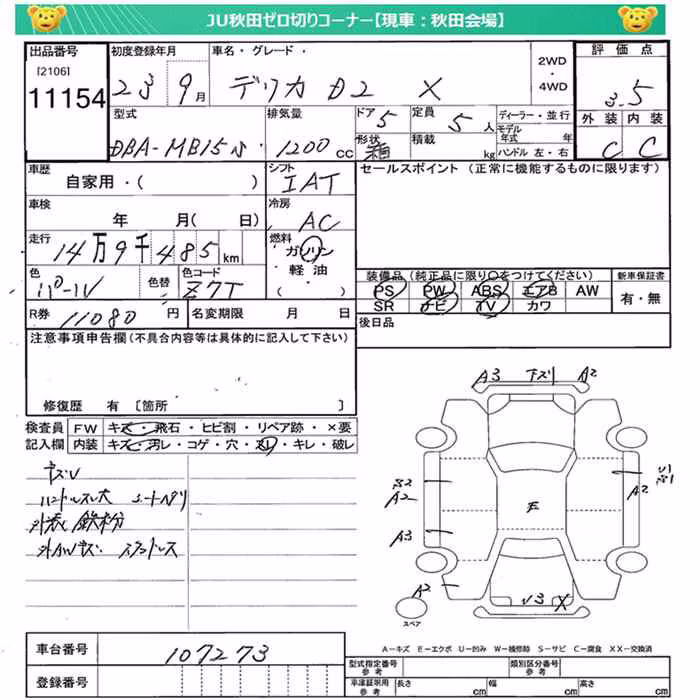 JU秋田ゼロ切りコーナー【現車：秋田会場】
出品番号
[2106]
11154
初度登録年月
23 9月
車名・グレード
デリカ D2 X
2WD
・
4WD
評価点
3.5
外装 内装
C C
型式
DBA-MB15S
排気量
1200 cc
ドア 5
定員 5 人
形状 箱
積載 kg
ディーラー・並行
モデル年式 年
ハンドル 左・右
車歴
自家用・( )
シフト
IAT
セールスポイント (正常に機能するものに限ります)
車検
年 月( 日)
冷房
AC
走行
14万9千485km
燃料
ガソリン
軽油
( )
色
パール
色替
色コード
Z7T
装備品 (純正品に限り○をつけてください)
PS PW ABS エアB AW
SR ナビ TV カワ
新車保証書
有・無
R券 11080 円
名変期限 月 日
後日品
注意事項申告欄(不具合内容等は具体的に記入して下さい)
修復歴 有 [箇所 ]
検査員 FW キズ・飛石・ヒビ割・リペア跡・×要
記入欄 内装 キズ・汚レ・コゲ・穴・スレ・キレ・破レ
ハンドルスレ大 シートヘタリ
外表 鉄粉
A3 下スリ A2
A2
A2
A3
A2
E
U3 X
スペア
A-キズ E-エクボ U-凹み W-補修跡 S-サビ C-腐食 XX-交換済
車台番号 107273
登録番号
型式指定番号 参考
類別区分番号 参考
車庫証明用 参考
長さ cm
幅 cm
高さ cm